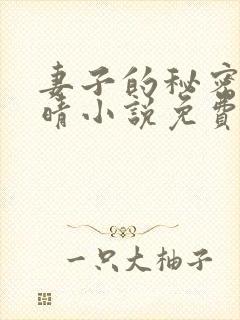 妻子的秘密
晴小説免費
一只大柚子